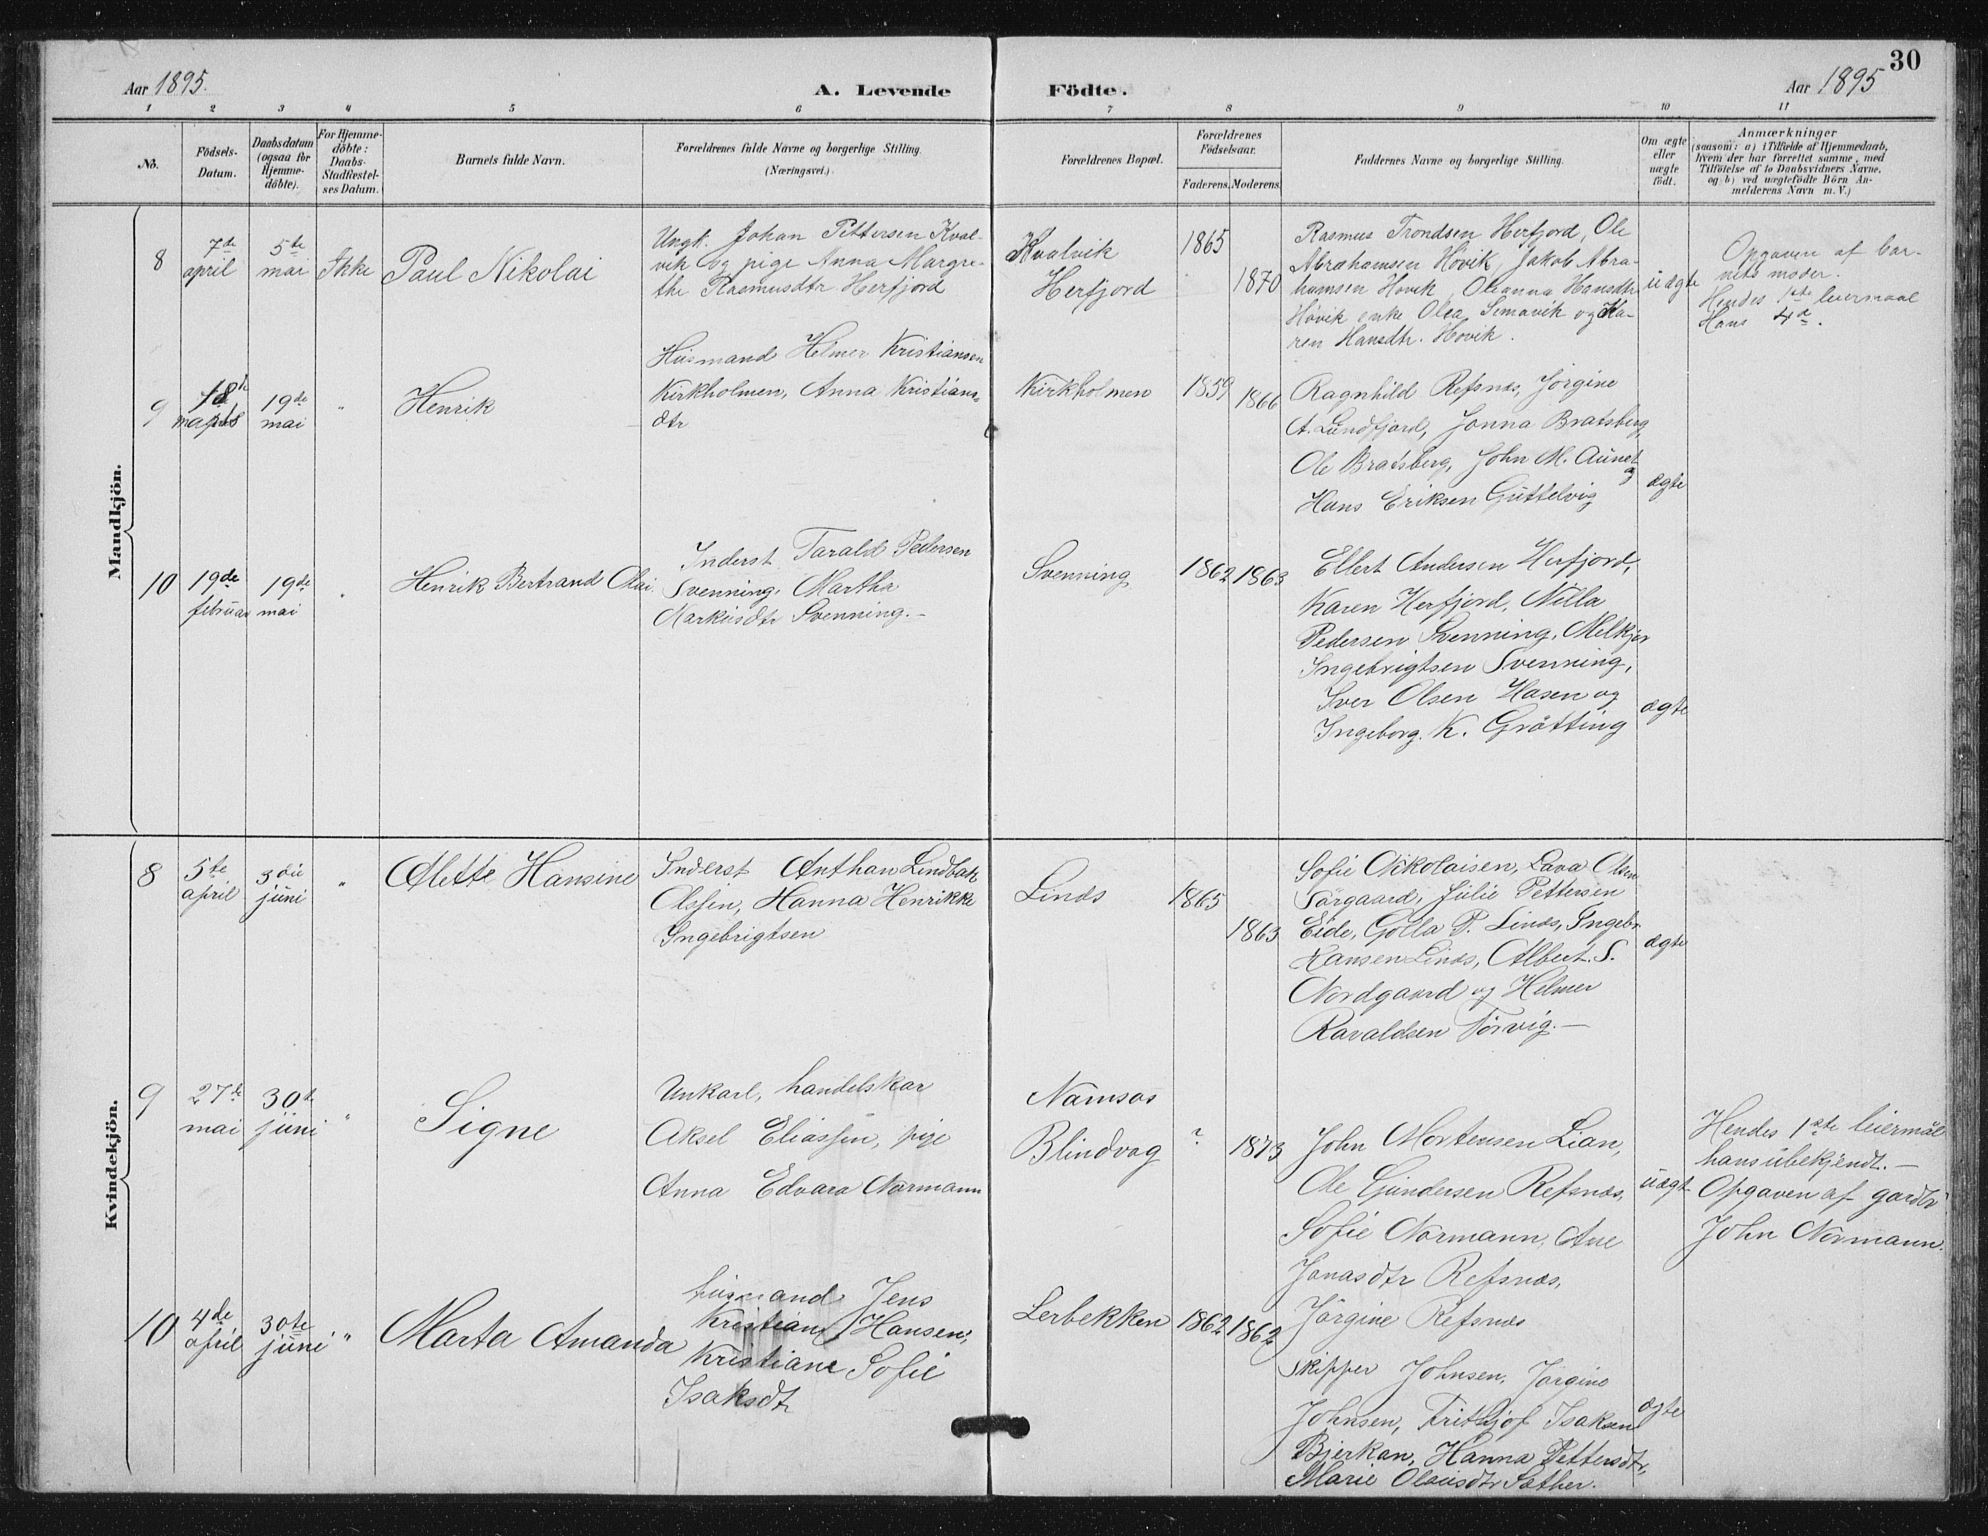 30
Aar 1895.
A. Levende Födte.
Aar 1895
1 2 3 4 5 6 7 8 9 10 11
No.
Födsels-Datum.
Daabsdatum (ogsaa for Hjemme-döbte).
For Hjemme-döbte: Daabs-Stadfæstel-ses Datum.
Barnets fulde Navn.
Forældrenes fulde Navne og borgerlige Stilling. (Næringsvei.)
Forældrenes Bopæl.
Forældrenes Födselsaar.
Faderens. Moderens.
Faddernes Navne og borgerlige Stilling.
Om ægte eller uægte födt.
Anmærkninger
(saasom: a) i Tilfælde af Hjemmedaab, hvem der har forrettet samme, med Tilföielse af to Daabsvidners Navne, og b) ved uægtefödte Börn An-melderens Navn m. V.)
Mandkjön.
8
7de april
5te mai
Ikke
Paul Nikolai
Ungk. Johan Pettersen Kval-
vik og pige Anna Margre-
the Rasmusdtr Herfjord
Kvalvik
Herfjord
1865
1870
Rasmus Trondsen Herfjord, Ole
Abrahamsen Hovik, Jakob Abra-
hamsen Hovik, Oleanna Hansdtr
Hövik enke Olea Semavik og Ka-
ren Hansdtr. Hovik.
uægte
Opgaven af bar-
nets moder.
Hendes 1ste leiermaal
Hans 4de.
9
18
19de mai
"
Henrik
Husmand Helmer Kristiansen
Kirkholmen, Anna Kristians-
dtr
Kirkholmen
1859
1866
Ragnhild Refsnæs, Jörgine
A. Lundfjord, Jonna Bratsberg,
Ole Bratsberg, John M. Aunet
og
Hans Eriksen Guttelvig
ægte
10
19de februar
19de mai
"
Henrik Bertrand Olai
Inderst Tarald Pedersen
Svenning, Martha
Markusdtr Svenning.-
Svenning
1862
1863
Ellert Andersen Herfjord,
Karen Herfjord, Nilla
Pedersen Svenning, Melkjor
Ingebrigtsen Svenning,
Iver Olsen Hasen og
Ingeborg K. Grötting
ægte
Kvindekjön.
8
5te april
3die juni
"
Alette Hansine
Inderst Anthan Lindbak
Olssen, Hanna Henrikke
Ingebrigtsen
Linds
1865
1863
Sofie Nikolaisen, Lava Olsen
Sörgaard, Julie Pettersen
Eide, Golla P. Linds, Ingebr.
Hansen Linds, Albert S.
Nordgaard og Helmer
Ravaldsen Törvig.-
ægte
9
27de mai
30te juni
"
Signe
Unkarl, handelskar
Aksel Eliassen, pige
Anna Edvara Normann
Namsos
Blindvag
?
1873
John Mortensen Lian,
Ole Gundersen Refsnæs,
Sofie Normann, Ane
Jonasdtr Refsnæs,
Jörgine Refsnæs
uægt
Hendes 1ste leiermål
hans ubekjendt.-
Opgaven af gardbr
John Normann.
10
4de april
30te juni
"
Marta Amanda
husmand Jens
Kristian Hansen,
Kristiane Sofie
Isaksdtr
Lerbekken
1862
1862
Skipper Johnsen, Jörgine
Johnsen, Frithjof Isaksen
Bjerkan, Hanna Pettersdtr,
Marie Olausdtr Sæther.
ægte